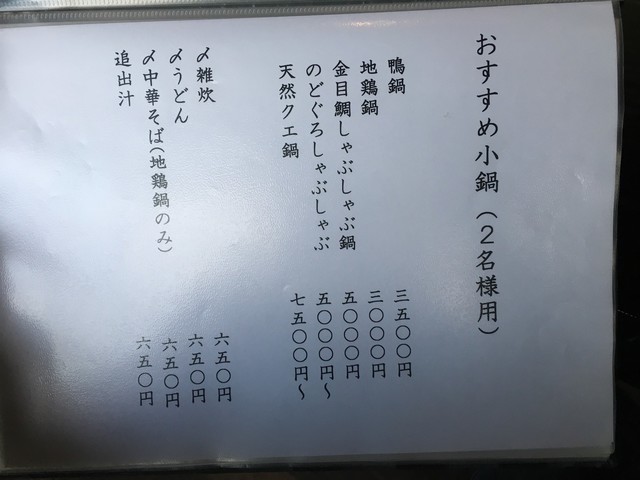 おすすめ小鍋(2名様用)
鴨鍋 三五〇〇円
地鶏鍋 三〇〇〇円
金目鯛しゃぶしゃぶ鍋 五〇〇〇円
のどぐろしゃぶしゃぶ 五〇〇〇円~
天然クエ鍋 七五〇〇円~
〆雑炊 六五〇円
〆うどん 六五〇円
〆中華そば(地鶏鍋のみ) 六五〇円
追出汁 六五〇円